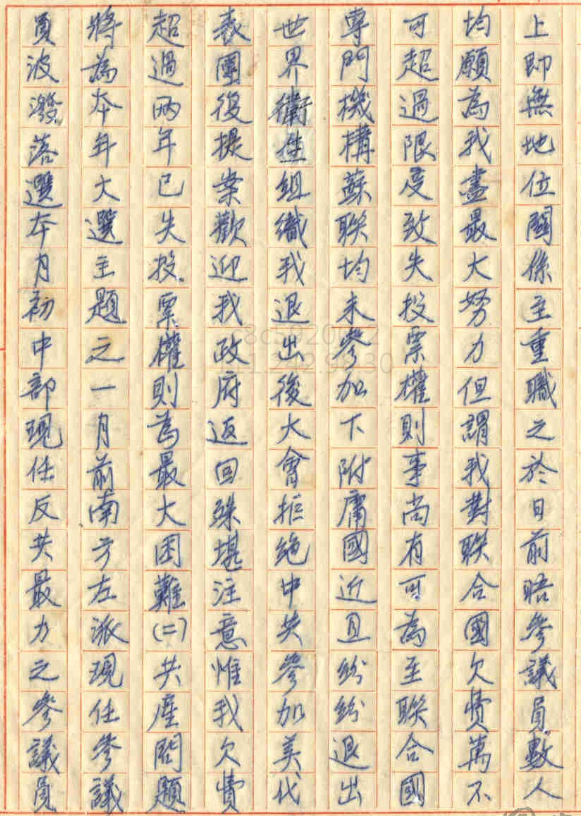 上即無地位關係主重職之於日前晤參議員數人
均願為我盡最大努力但謂我對聯合國欠費萬不
可超過限度致失投票權則事尚有可為至聯合國
專門機構蘇聯均未參加下附庸國近且紛紛退出
世界衛生組織我退出後大會拒絕中共參加美代
表團後提案歡迎我政府返回殊堪注意惟我欠費
超過兩年已失投票權則為最大困難(二)共產問題
將為本年大選主題之一月前南方左派現任參議
員波潑落選本月初中部現任反共最力之參議員